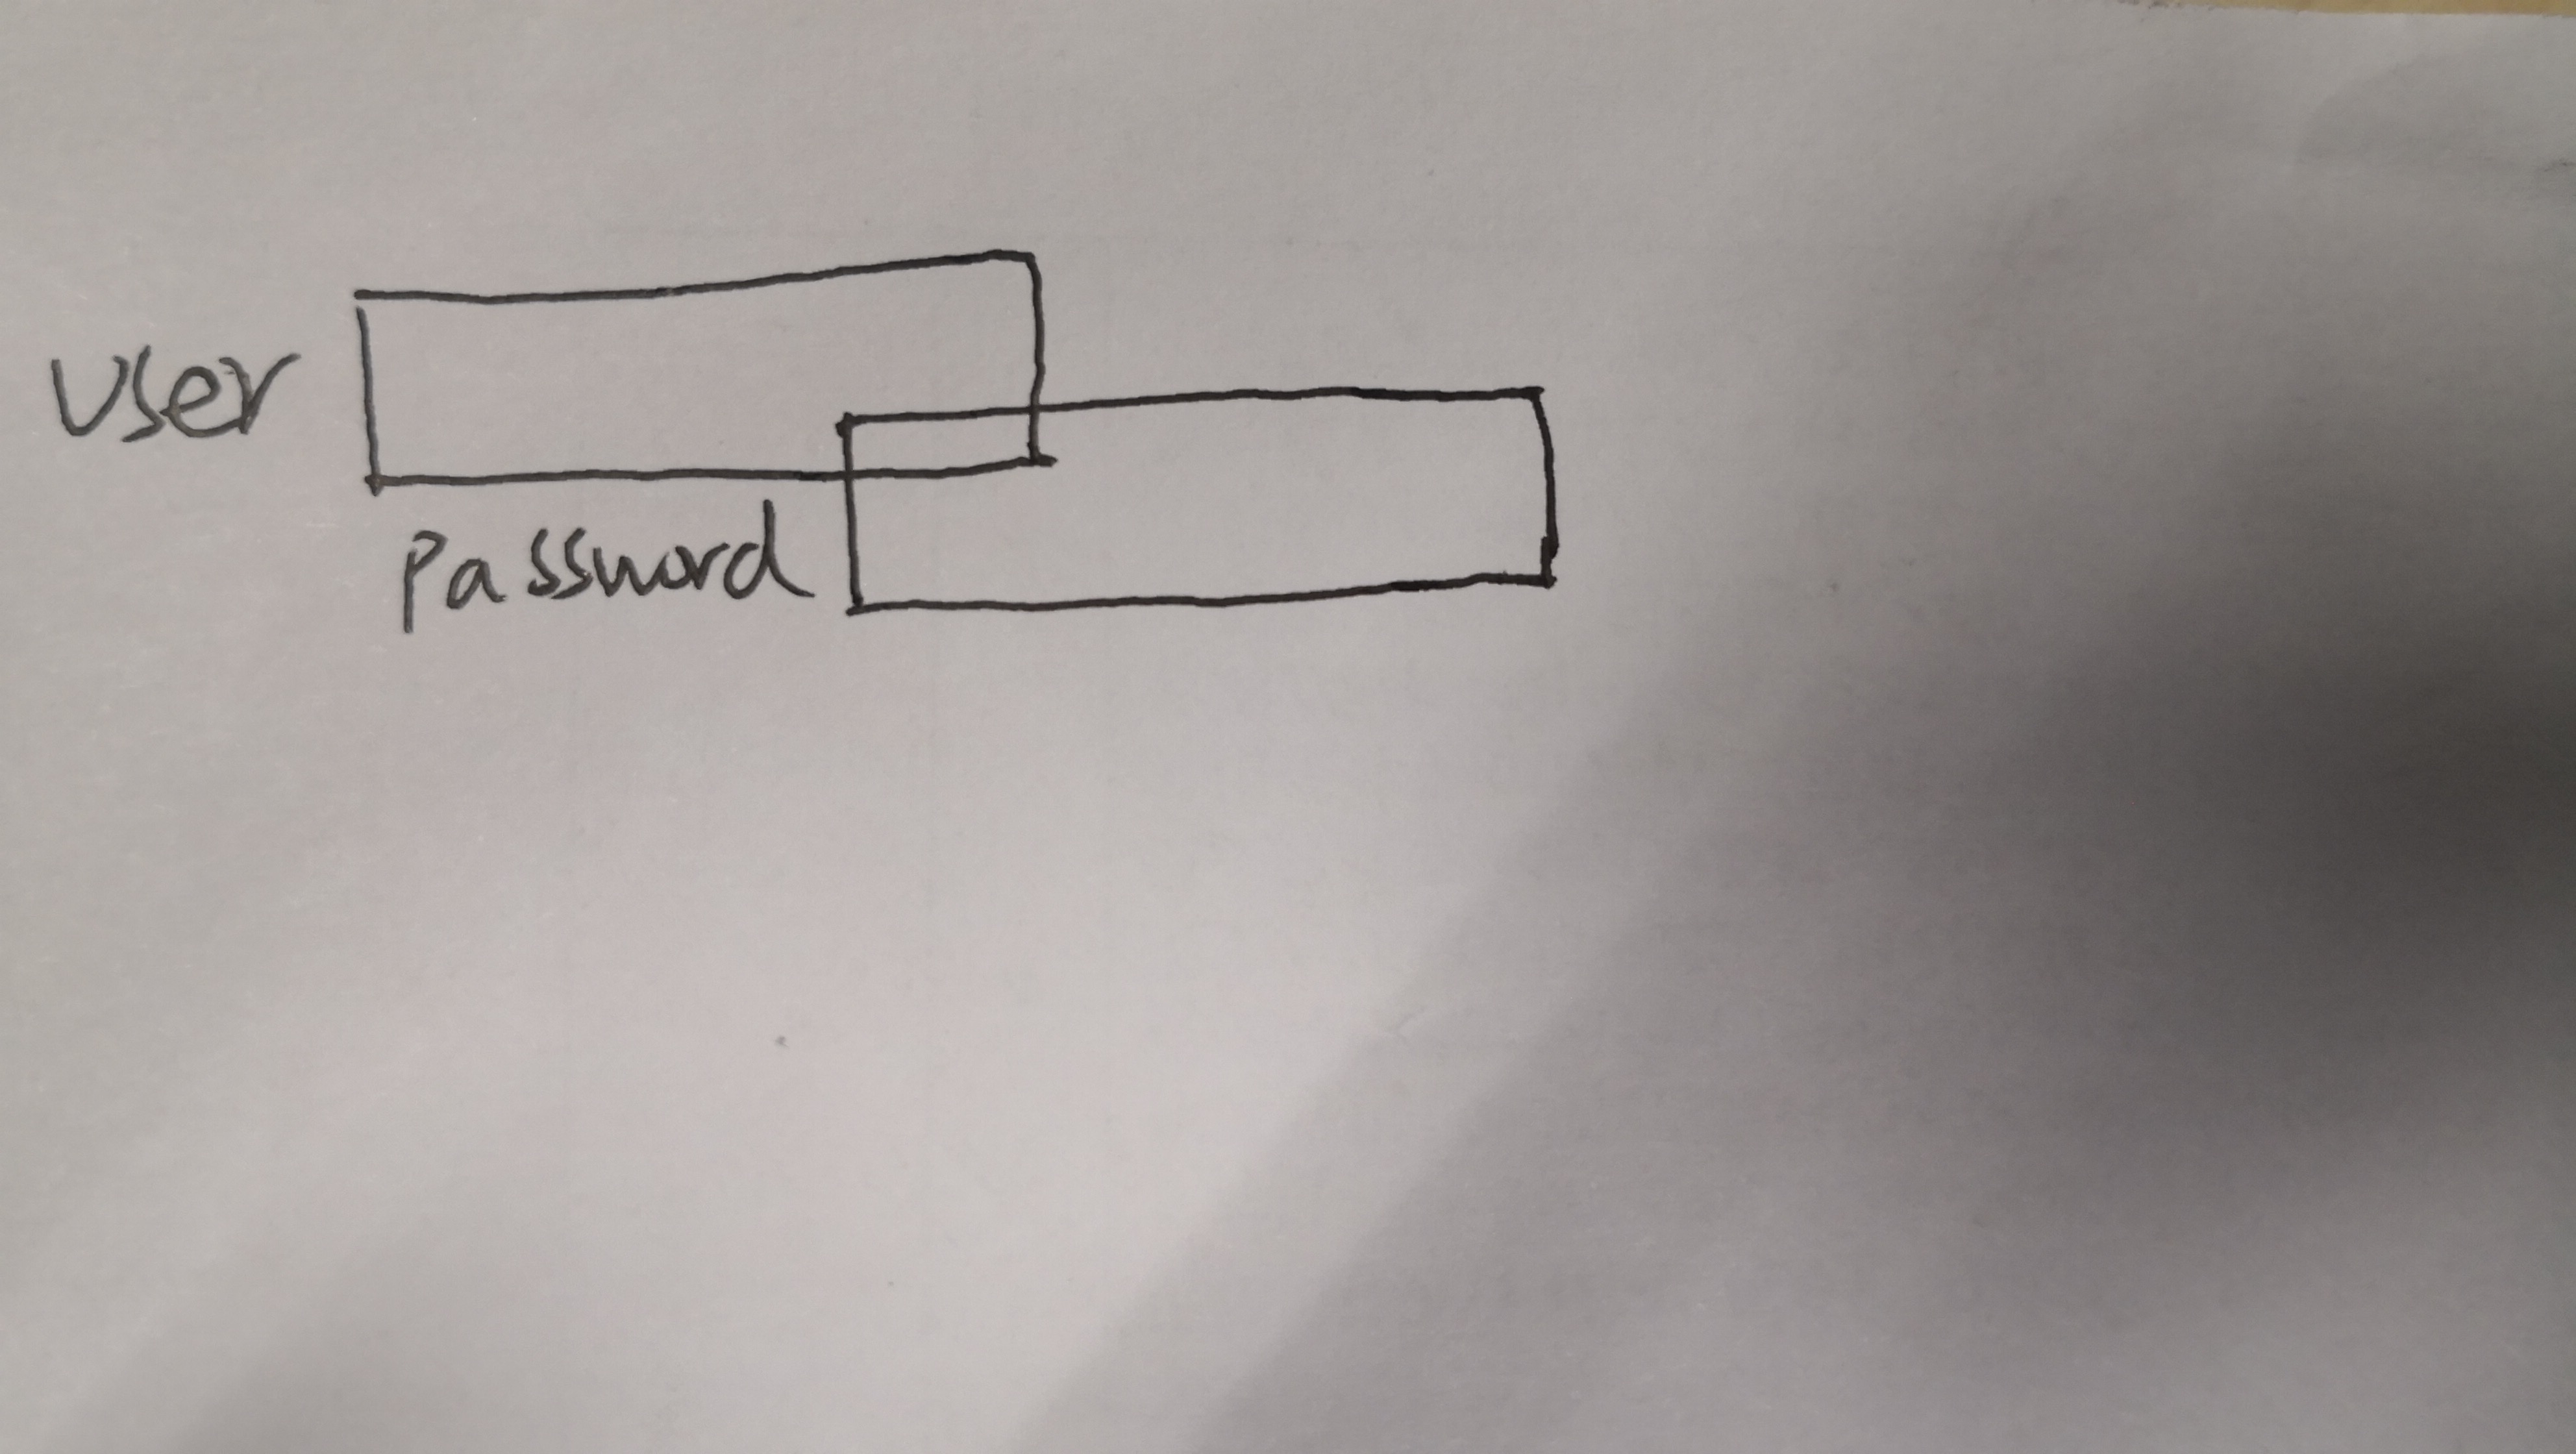 User
Password